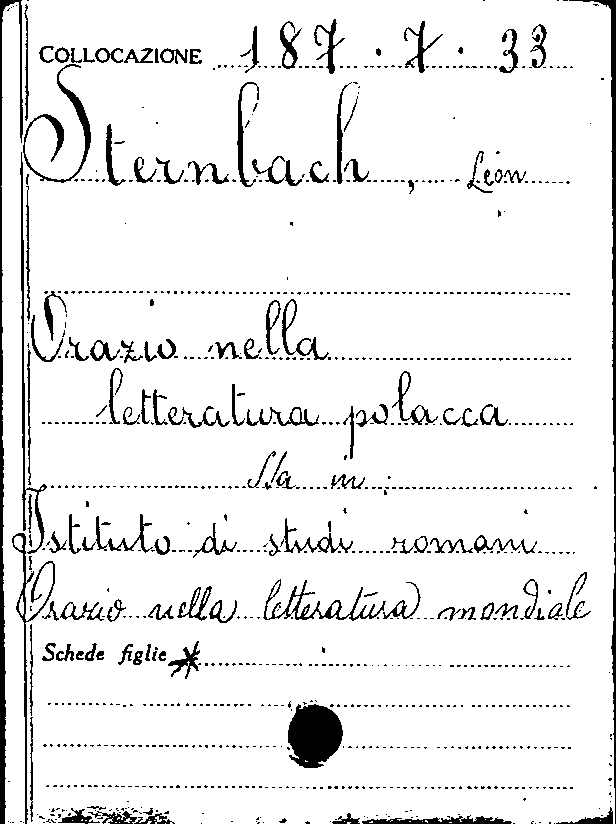 COLLOCAZIONE 187 · 7 · 33
Sternbach, Léon
Orazio nella
letteratura polacca
Sta in:
Istituto di studi romani
Orazio nella letteratura mondiale
Schede figlie *